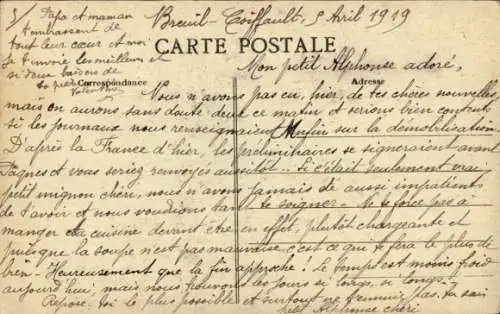 5/ Papa et maman
t'embrassent de
tout leur cœur et moi
je t'envoie les meilleurs et
si doux baisers de
ta petite
Valentine
Breuil-Coiffault, 5 Avril 1919
CARTE POSTALE
Correspondance
Adresse
Mon petit Alphonse adoré,
Nous n'avons pas eu, hier, de tes chères nouvelles
mais en aurons sans doute deux ce matin et serions bien contents
si les journaux nous renseignaient enfin sur la démobilisation
D'après la France d'hier, les préliminaires se signeraient avant
Pâques et vous seriez renvoyés aussitôt... Si c'était seulement vrai
petit mignon chéri, nous n'avons jamais été aussi impatients
de t'avoir et nous voudrions tant te soigner - ne te force pas à
manger ta cuisine devant être en effet, plutôt chargeante et
puisque la soupe n'est pas mauvaise c'est ce que te fera le plus de
bien - Heureusement que la fin approche! Le temps est moins froid
aujourd'hui, mais nous trouvons les jours si longs, si longs -
Repose-toi le plus possible et surtout ne t'ennuie pas. Ton sain
petit Alphonse chéri